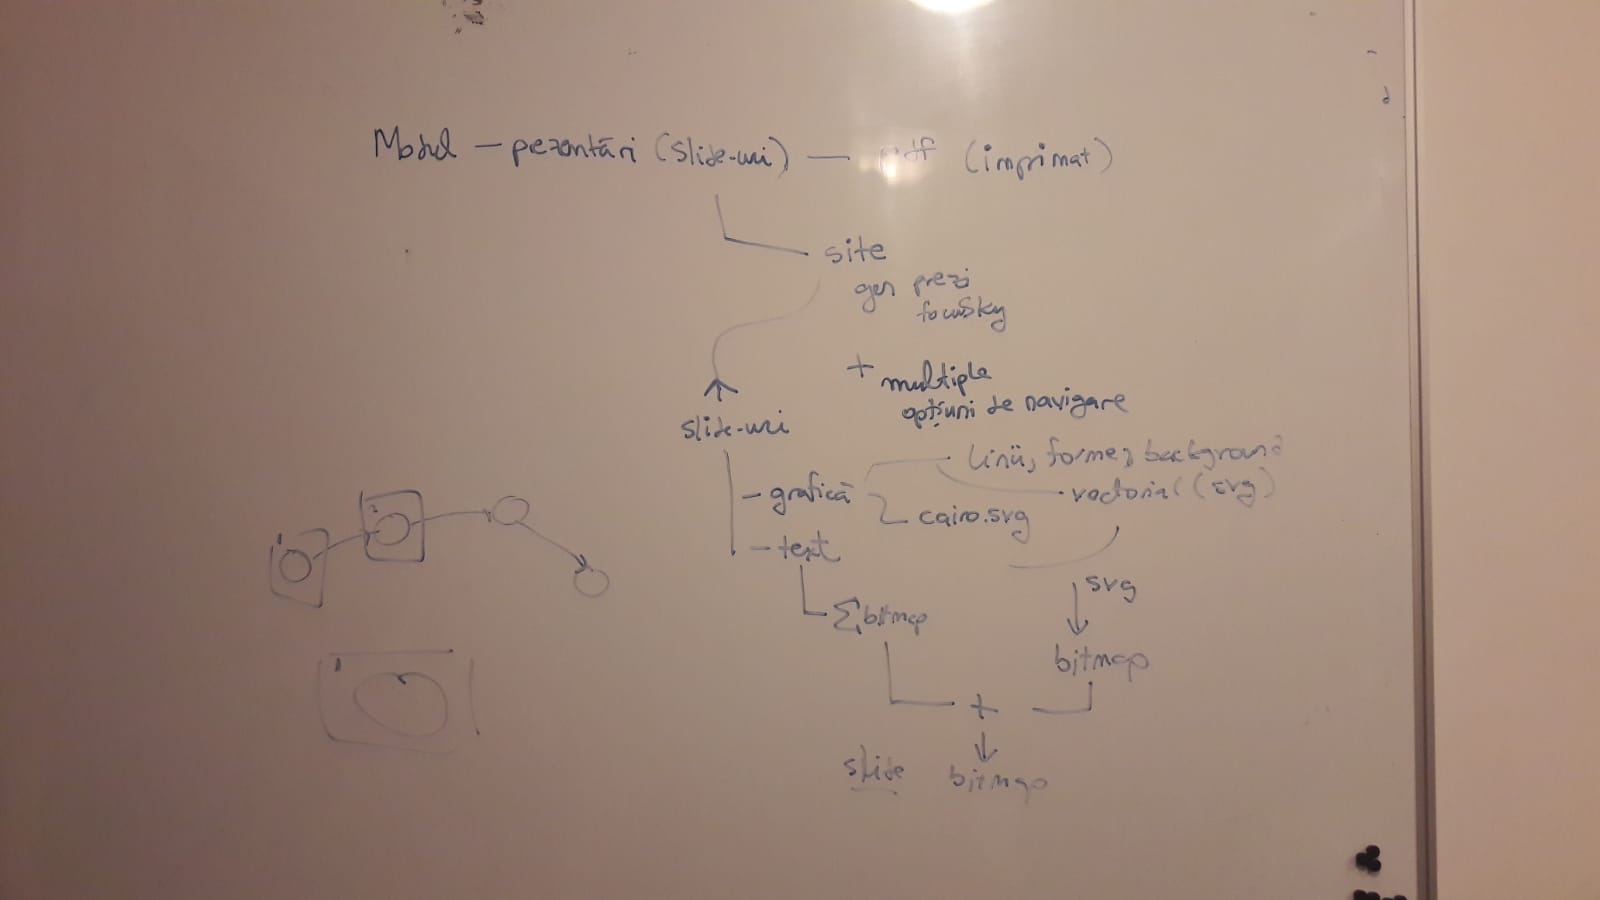 Modul — prezentări (slide-uri) — pdf (imprimat)
site
gen prezi
focusky
+ multiple
opțiuni de navigare
slide-uri
linii, forme, background
- grafică
vectorial (svg)
cairo.svg
- text
svg
Σ bitmap
bitmap
+
slide bitmap